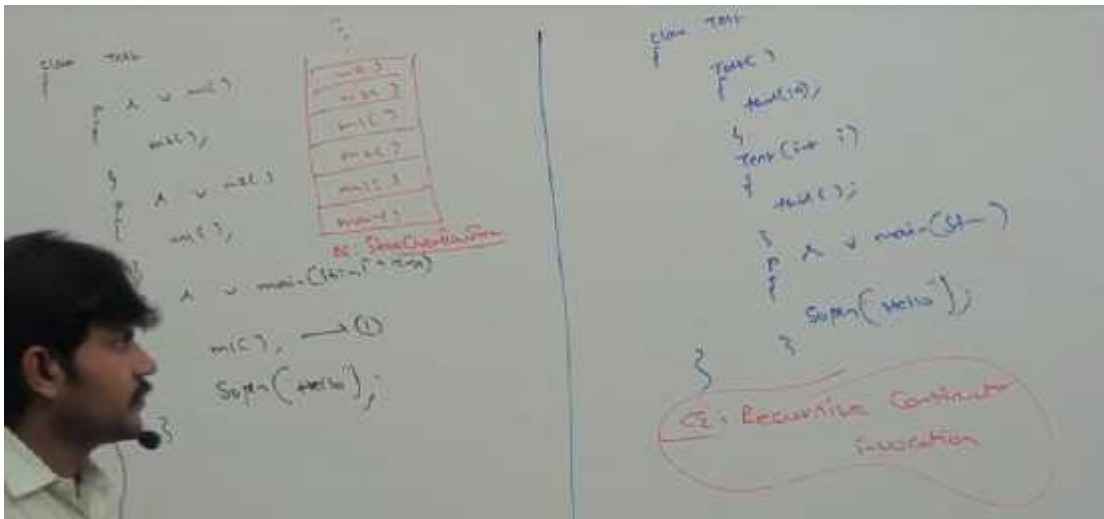 class Test
{
p s v m1()
{
m2();
}
p s v m2()
{
m1();
}
s v main(String[] args)
{
m1(); → ①
Sopln("Hello");
}
m2()
m1()
m2()
m1()
main()
RE: StackOverflowError
class Test
{
Test()
{
this(10);
}
Test(int i)
{
this();
}
p s v main(
{
Sopln("Hello");
}
}
CE: Recursive Constructor
invocation